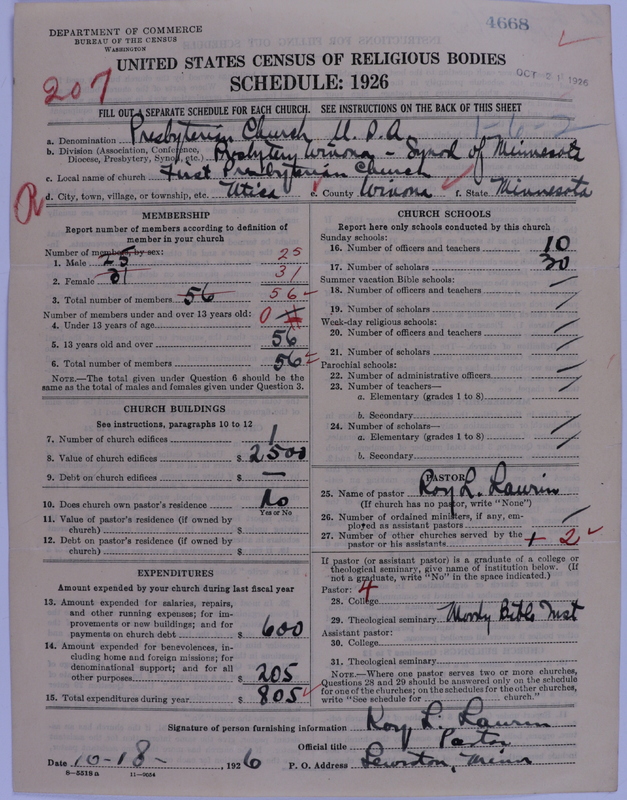 4668
DEPARTMENT OF COMMERCE
BUREAU OF THE CENSUS
WASHINGTON
UNITED STATES CENSUS OF RELIGIOUS BODIES
SCHEDULE: 1926
OCT 21 1926
207
FILL OUT A SEPARATE SCHEDULE FOR EACH CHURCH. SEE INSTRUCTIONS ON THE BACK OF THIS SHEET
a. Denomination Presbyterian Church U.S.A. 1-6-2
b. Division (Association, Conference, Diocese, Presbytery, Synod, etc.) Presbytery Winona - Synod of Minnesota
c. Local name of church First Presbyterian Church
R
d. City, town, village, or township, etc. Utica e. County Winona f. State Minnesota
MEMBERSHIP
Report number of members according to definition of
member in your church
Number of members, by sex:
1. Male 25 25
2. Female 31 31
3. Total number of members 56 56
Number of members under and over 13 years old:
4. Under 13 years of age 0
5. 13 years old and over 56
6. Total number of members 56
NOTE.—The total given under Question 6 should be the
same as the total of males and females given under Question 3.
CHURCH BUILDINGS
See instructions, paragraphs 10 to 12
7. Number of church edifices 1
8. Value of church edifices $ 2500
9. Debt on church edifices $ —
10. Does church own pastor's residence No
Yes or No
11. Value of pastor's residence (if owned by
church) $
12. Debt on pastor's residence (if owned by
church) $
EXPENDITURES
Amount expended by your church during last fiscal year
13. Amount expended for salaries, repairs,
and other running expenses; for im-
provements or new buildings; and for
payments on church debt $ 600
14. Amount expended for benevolences, in-
cluding home and foreign missions; for
denominational support; and for all
other purposes $ 205
15. Total expenditures during year $ 805
CHURCH SCHOOLS
Report here only schools conducted by this church
Sunday schools:
16. Number of officers and teachers 10
17. Number of scholars 30
Summer vacation Bible schools:
18. Number of officers and teachers
19. Number of scholars
Week-day religious schools:
20. Number of officers and teachers
21. Number of scholars
Parochial schools:
22. Number of administrative officers
23. Number of teachers—
a. Elementary (grades 1 to 8)
b. Secondary
24. Number of scholars—
a. Elementary (grades 1 to 8)
b. Secondary
PASTOR
25. Name of pastor Roy L. Laurin
(If church has no pastor, write "None")
26. Number of ordained ministers, if any, em-
ployed as assistant pastors
27. Number of other churches served by the
pastor or his assistants 2
If pastor (or assistant pastor) is a graduate of a college or
theological seminary, give name of institution below. (If
not a graduate, write "No" in the space indicated.)
Pastor: 4
28. College
29. Theological seminary Moody Bible Inst
Assistant pastor:
30. College
31. Theological seminary
NOTE.—Where one pastor serves two or more churches,
Questions 28 and 29 should be answered only on the schedule
for one of the churches; on the schedules for the other churches,
write "See schedule for ________ church."
Signature of person furnishing information Roy L. Laurin
Official title Pastor
Date 10-18- , 1926 P. O. Address Lewiston, Minn
8-5519 a 11-9054